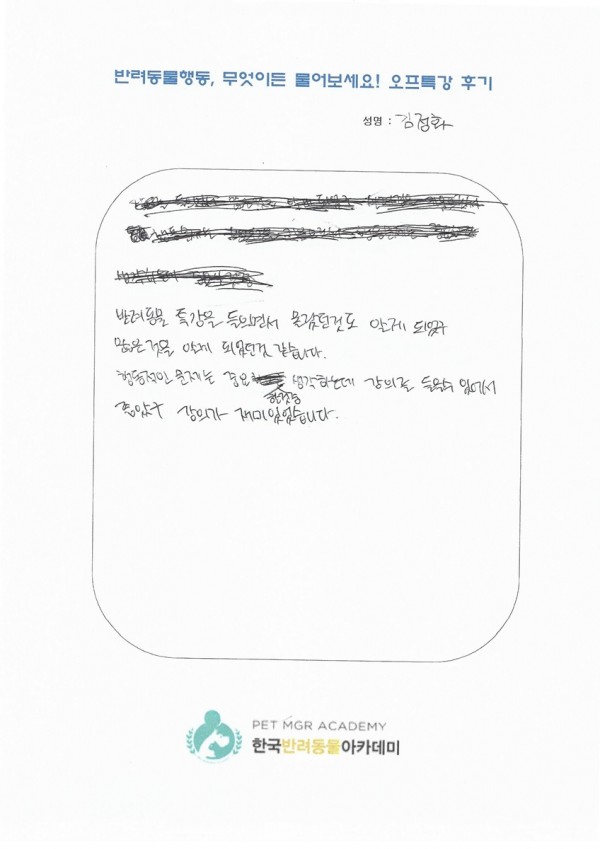 반려동물행동, 무엇이든 물어보세요! 오프특강 후기
성명 : 김정화
반려동물 특강을 들으면서 몰랐던것도 알게 되었구
많은것을 알게 되었던것 같습니다.
행동적인 문제는 중요한것중 생각하는데 강의를 들을수 있어서
좋았구 강의가 재미있었습니다.
PET MGR ACADEMY
한국반려동물아카데미